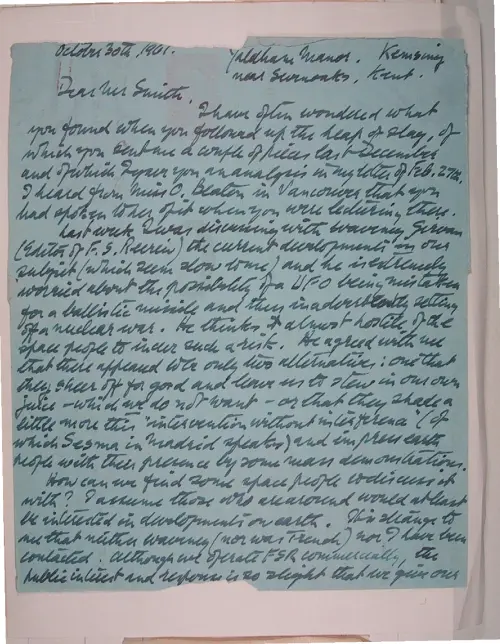 October 30th, 1961. Yaldham Manor. Kemsing
near Sevenoaks, Kent.
Dear Mr Smith,
I have often wondered what
you found when you followed up the heap of slag, of
which you sent me a couple of pieces last December
and of which I gave you an analysis in my letter of Feb. 27th.
I heard from Miss O. Beaton in Vancouver that you
had spoken to her of it when you were lecturing there.
Last week I was discussing with Waveney Girvan
(Editor of F.S. Review) the current developments in our
subject (which seem slow to me) and he is extremely
worried about the possibility of a UFO being mistaken
for a ballistic missile and thus inadvertently setting
off a nuclear war. He thinks it almost hostile of the
space people to incur such a risk. He agreed with me
that there appeared to be only two alternatives: one that
they sheer off for good and leave us to stew in our own
juice - which we do not want - or that they shade a
little more this "intervention without interference" (of
which Sesma in Madrid speaks) and impress earth
people with their presence by some mass demonstrations.
How can we find some space people to discuss it
with? I assume those who are around would at least
be interested in developments on earth. It is strange to
me that neither Waveney (nor was Trench) nor I have been
contacted. Although we operate FSR commercially, the
public interest and response is so slight that we give our